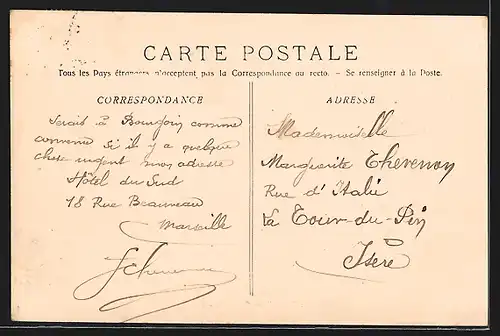 CARTE POSTALE
Tous les Pays étrangers n'acceptent pas la Correspondance au recto. - Se renseigner à la Poste.
CORRESPONDANCE
Serait à Bourgoin comme
convenu si il y a quelque
chose urgent mon adresse
Hôtel du Sud
18 Rue Beauveau
Marseille
ADRESSE
Mademoiselle
Marguerite Thevenon
Rue d'Italie
La Tour-du-Pin
Isère